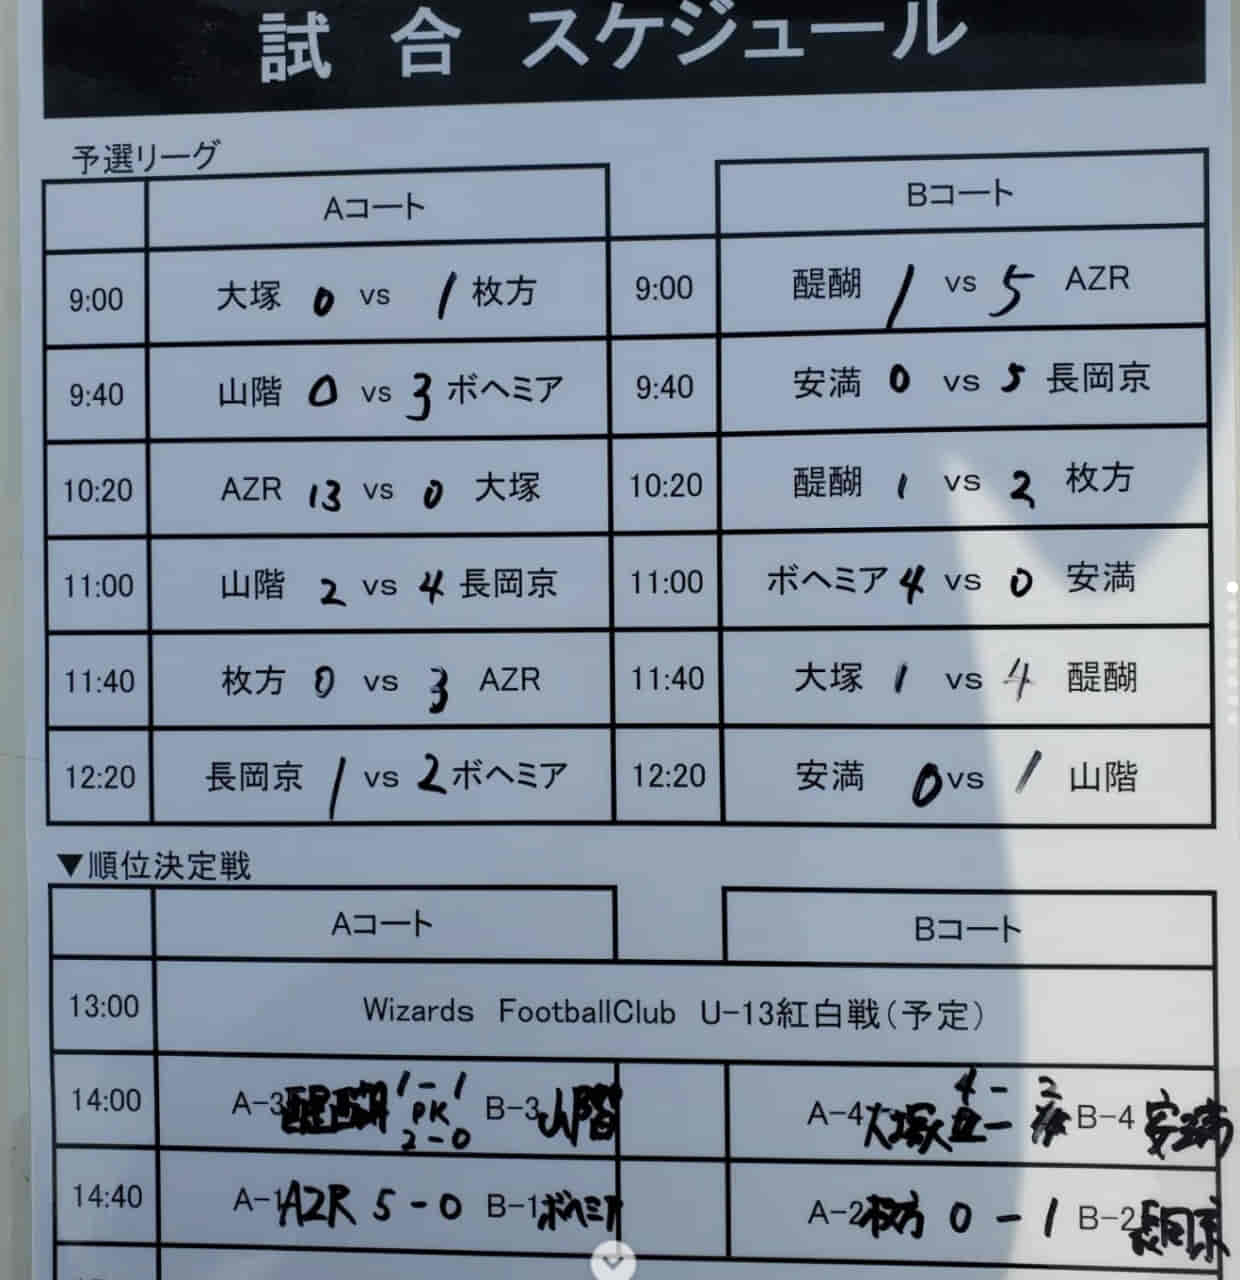 試合 スケジュール
予選リーグ
Aコート Bコート
9:00 大塚 0 vs 1 枚方 9:00 醍醐 1 vs 5 AZR
9:40 山階 0 vs 3 ボヘミア 9:40 安満 0 vs 5 長岡京
10:20 AZR 13 vs 0 大塚 10:20 醍醐 1 vs 2 枚方
11:00 山階 2 vs 4 長岡京 11:00 ボヘミア 4 vs 0 安満
11:40 枚方 0 vs 3 AZR 11:40 大塚 1 vs 4 醍醐
12:20 長岡京 1 vs 2 ボヘミア 12:20 安満 0 vs 1 山階
▼順位決定戦
Aコート Bコート
13:00 Wizards FootballClub U-13紅白戦(予定)
14:00 A-3 醍醐 1-1 PK 2-0 B-3 山階 A-4 大塚 4-2 B-4 安満
14:40 A-1 AZR 5-0 B-1 ボヘミア A-2 枚方 0-1 B-2 長岡京